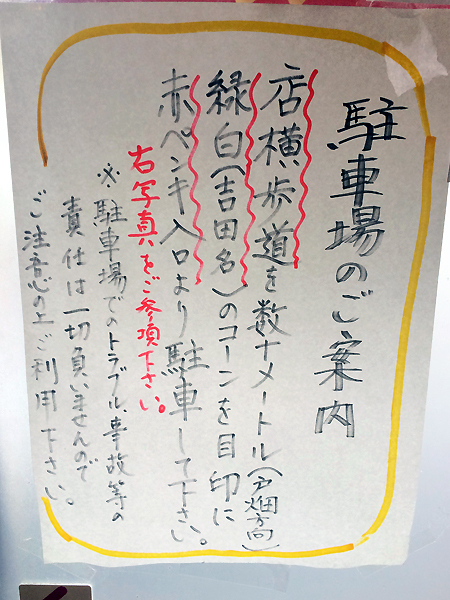 駐車場のご案内
店横歩道を数十メートル(戸畑方向)
緑白(吉田名)のコーンを目印に
赤ペンキ入口より駐車して下さい。
右写真をご参項下さい。
※駐車場でのトラブル、事故等の
責任は一切負いませんので
ご注意の上ご利用下さい。